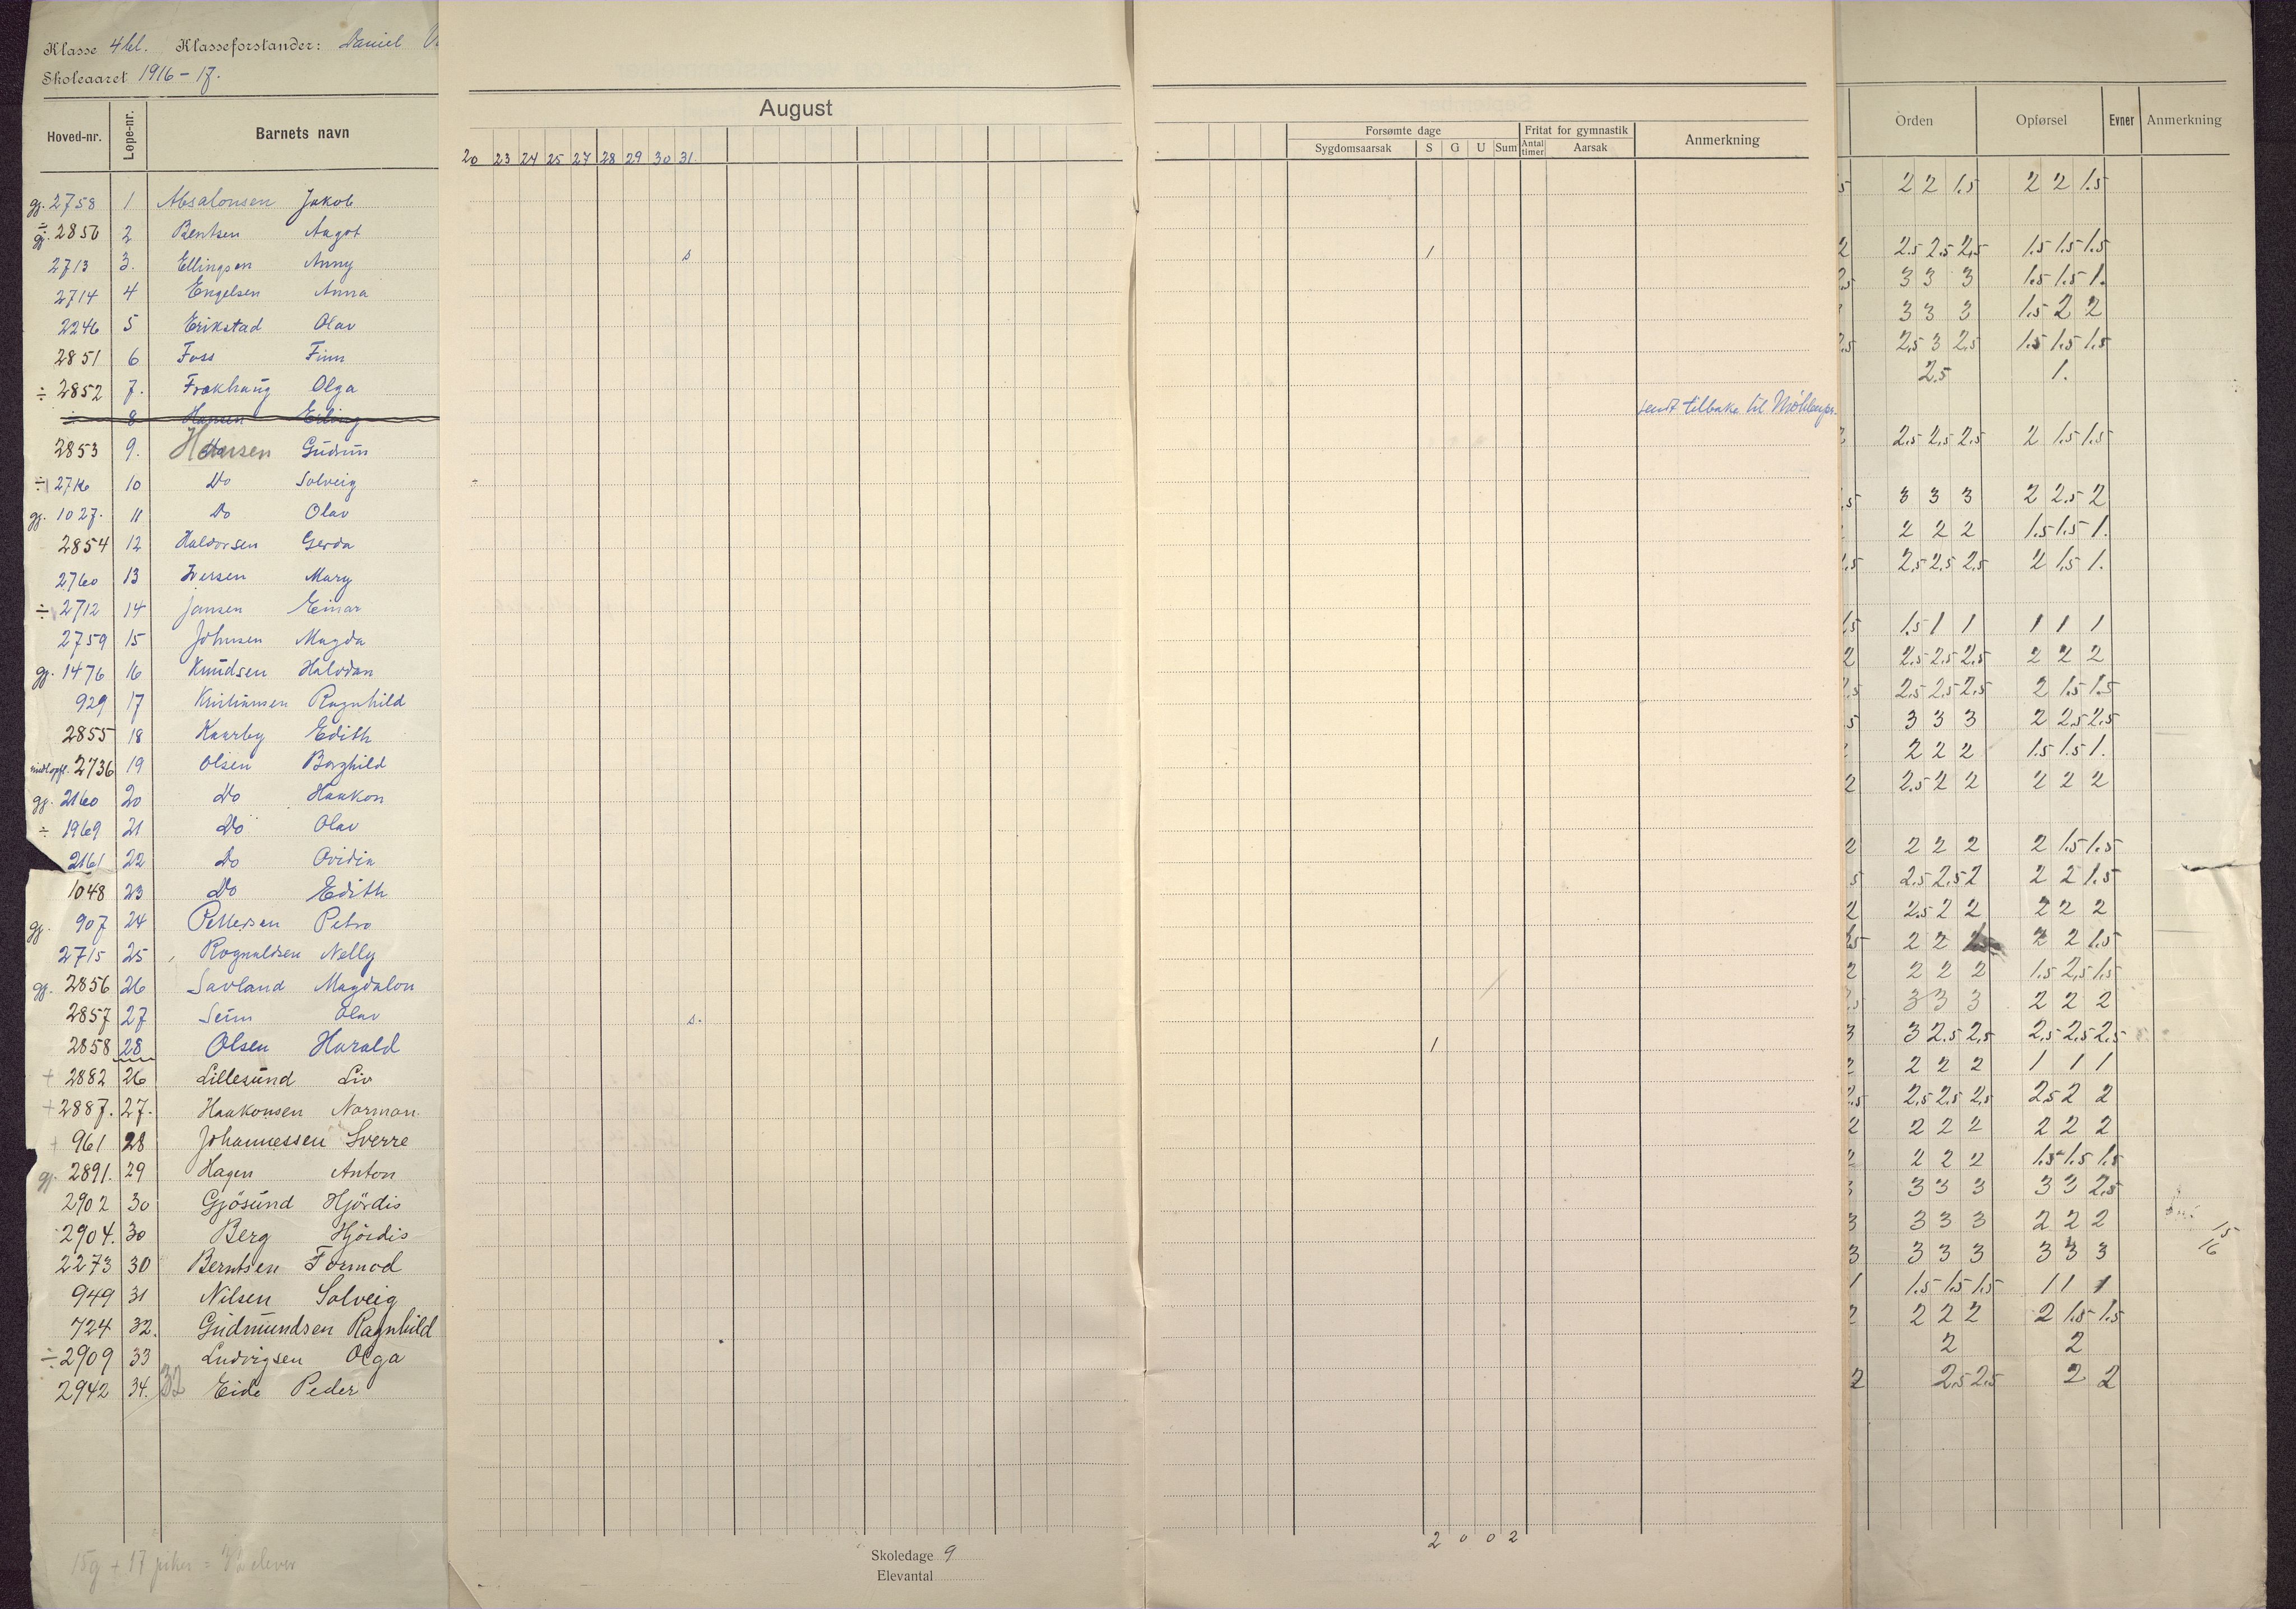 Klasse 4 bl. Klasseforstander: Daniel
Skoleaaret 1916-17.
Hoved-nr. Løpe-nr. Barnets navn
gj. 2758 1 Absalonsen Jakob
÷ gj. 2856 2 Bentsen Aagot
2713 3. Ellingsen Anny
2714 4 Engelsen Anna
2246 5 Erikstad Olav
2851 6 Foss Finn
÷ 2852 7. Frækhaug Olga
8 Hansen Erling
2853 9. Hansen Gudrun
÷ 2716 10 Do Solveig
gj. 1027. 11 Do Olav
2854 12 Haldorsen Gerda
2760 13 Iversen Mary
÷ 2712 14 Jansen Einar
2759 15 Johnsen Magda
gj. 1476 16 Knudsen Halvdan
929 17 Kristiansen Ragnhild
2855 18 Kaarby Edith
2736 19 Olsen Borghild
gj. 2160 20 Do Haakon
÷ 1969 21 Do Olav
2161 22 Do Ovidia
1048 23 Do Edith
gj. 907 24 Pettersen Petra
2715 25 Rognaldsen Nelly
gj. 2856 26 Savland Magdalon
2857 27 Seim Olav
2858 28 Olsen Harald
+ 2882 26 Lillesund Liv
+ 2887. 27. Haakonsen Norman.
+ 961 28 Johannessen Sverre
gj. 2891. 29 Hagen Anton
2902 30 Gjøsund Hjördis
2904. 30 Berg Hjördis
2273 30 Berntsen Formod
949 31 Nilsen Solveig
724 32. Gudmundsen Ragnhild
÷ 2909 33 Ludvigsen Olga
2942 34. 32 Eide Peder
15g + 17 piker = 32 elever
August
20 23 24 25 27 28 29 30 31.
s
÷
s.
Skoledage 9
Elevantal
Forsømte dage Fritat for gymnastik Anmerkning
Sygdomsaarsak S G U Sum Antal timer Aarsak
1
sendt tilbake til
1
2 0 0 2
Orden Opførsel Evner Anmerkning
5 2 2 1.5 2 2 1.5
2 2.5 2.5 2.5 1.5 1.5 1.5
2.5 3 3 3 1.5 1.5 1.
3 3 3 1.5 2 2
2.5 2.5 3 2.5 1.5 1.5 1.5
2.5 1.
2.5 2.5 2.5 2 1.5 1.5
.5 3 3 3 2 2.5 2
2 2 2 1.5 1.5 1.
.5 2.5 2.5 2.5 2 1.5 1.
1.5 1.5 1 1 1 1 1
2 2.5 2.5 2.5 2 2 2
2.5 2.5 2.5 2.5 2 1.5 1.5
5 3 3 3 2 2.5 2.5
2 2 2 1.5 1.5 1.
2 2.5 2 2 2 2 2
2 2 2 2 2 1.5 1.5
5 2.5 2.5 2 2 2 1.5
2 2.5 2 2 2 2 2
1.5 2 2 1.5 2 2 1.5
2 2 2 2 1.5 2.5 1.5
.5 3 3 3 2 2 2
3 3 2.5 2.5 2.5 2.5 2.5
2 2 2 2 1 1 1
2.5 2.5 2.5 2.5 2.5 2 2
2 2 2 2 2 2 2
2 2 2 2 1.5 1.5 1.5
3 3 3 3 3 2.5
3 3 3 3 2 2 2
15
16
3 3 3 3 3 3 3
1 1.5 1.5 1.5 1 1 1
2 2 2 2 2 1.5 1.5
2 2
2 2.5 2.5 2 2